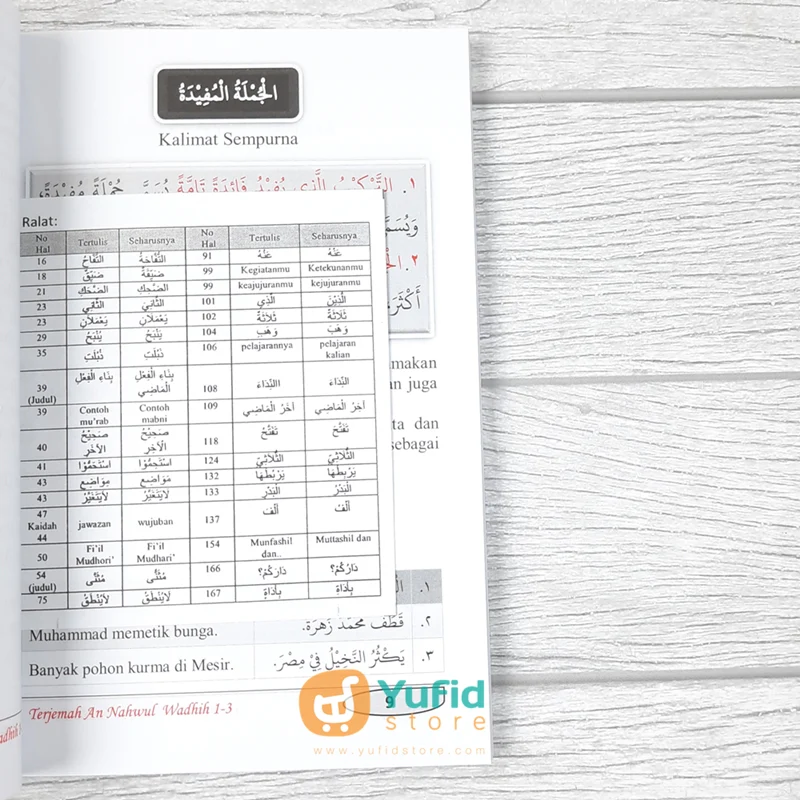 الْجُمْلَةُ الْمُفِيْدَةُ
Kalimat Sempurna
١. التَّرْكِيْبُ الَّذِي يُفِيْدُ فَائِدَةً تَامَّةً يُسَمَّى جُمْلَةً مُفِيْدَةً،
أَكْثَرَ
Ralat:
No Hal Tertulis Seharusnya No Hal Tertulis Seharusnya
16 التُّفَّاحُ التُّفَّاحَةُ 91 عَنْهُ عَنْهُ
18 ضَيِّقٌ ضَيِّقَةٌ 99 Kegiatanmu Ketekunanmu
21 الضَّحِكِ الضَّحِكَ 99 keajujuranmu kejujuranmu
23 الثَّانِي الثَّانِيَ 101 الَّذِي الَّذِيْنَ
23 يَعْمَلَانِ يَعْمَلَانِ 102 ثَلَاثَةٌ ثَلَاثَةُ
29 يَنْبَحُ يَنْبَحُ 104 وَهَبَ وَهَبَ
35 ذَبُلَتْ ذَبُلَتْ 106 pelajarannya pelajaran kalian
39 (Judul) بِنَاءِ الْفِعْلِ بِنَاءِ الْفِعْلِ الْمَاضِي 108 النِّدَاءَ النِّدَاءَ
39 Contoh mu'rab Contoh mabni 109 آخَرُ الْمَاضِي آخِرُ الْمَاضِي
40 صَحِيْحُ الْآخَرِ صَحِيْحُ الْآخِرِ 118 تَفْتَحُ تَفْتَحُ
41 اسْتَحَمُّوْا اسْتَحَمُّوْا 124 الثُّلَاثِيِّ الثُّلَاثِيِّ
43 مَوَاضِعِ مَوَاضِعِ 132 يَرْبِطُهَا يَرْبِطُهَا
43 لَايَتَغَيَّرُ لَايَتَغَيَّرُ 133 الْبَدْرُ الْبَدْرُ
47 Kaidah 44 jawazan wujuban 137 أَلْفُ أَلْفَ
50 Fi'il Mudhori' Fi'il Mudhari' 154 Munfashil dan.. Muttashil dan
54 (judul) مُثَنَّى مُثَنًّى 166 دَارُكُمْ؟ دَارُكُمْ؟
75 لَايَنْطِقُ لَايَنْطِقُ 167 بِأَدَاةٍ بِأَدَاةِ
makan
n juga
ta dan
sebagai
١.
Muhammad memetik bunga. قَطَفَ مُحَمَّدٌ زَهْرَةً. ٢.
Banyak pohon kurma di Mesir. يَكْثُرُ النَّخِيْلُ فِيْ مِصْرَ. ٣.
Terjemah An Nahwul Wadhih 1-3
9
Yufid
store
www.yufidstore.com